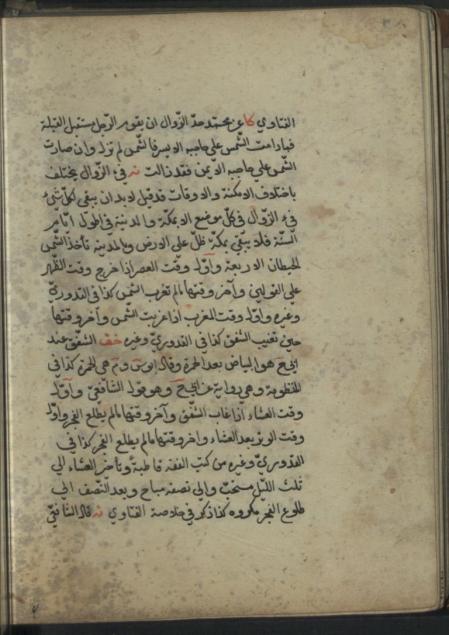 الفتاوي كا عن محمد حد الزوال ان يقوم الرجل مستقبل القبلة
فما دامت الشمس على حاجبه الايسر فالشمس لم تزل وان صارت
الشمس على حاجبه الايمن فقد زالت نه فئ الزوال يختلف
باختلاف الامكنة والاوقات قد قيل لا بد ان يبقى لكل شئ
فئ الزوال في كل موضع الا بمكة والمدينة في اطول ايام
السنة فلا يبقى بمكة ظل على الارض وبالمدينة تأخذ الشمس
الحيطان الاربعة واول وقت العصر اذا خرج وقت الظهر
على القولين وآخر وقتها ما لم تغرب الشمس كذا في القدوري
وغيره واول وقت المغرب اذا غربت الشمس وآخر وقتها
حين تغيب الشفق كذا في القدوري وغيره الشفق عند
ابي ح هو البياض بعد الحمرة وقال ابو س و م هي الحمرة كذا في
المنظومة وهي رواية عن ابي ح وهو قول الشافعي واول
وقت العشاء اذا غاب الشفق وآخر وقتها ما لم يطلع الفجر واول
وقت الوتر بعد العشاء وآخر وقتها ما لم يطلع الفجر كذا في
القدوري وغيره من كتب الفقه قاطبة وتأخر العشاء الى
ثلث الليل مستحب والى نصفه مباح وبعد النصف الى
طلوع الفجر مكروه كذا ذكر في خلاصة الفتاوي نه قال الشافعي